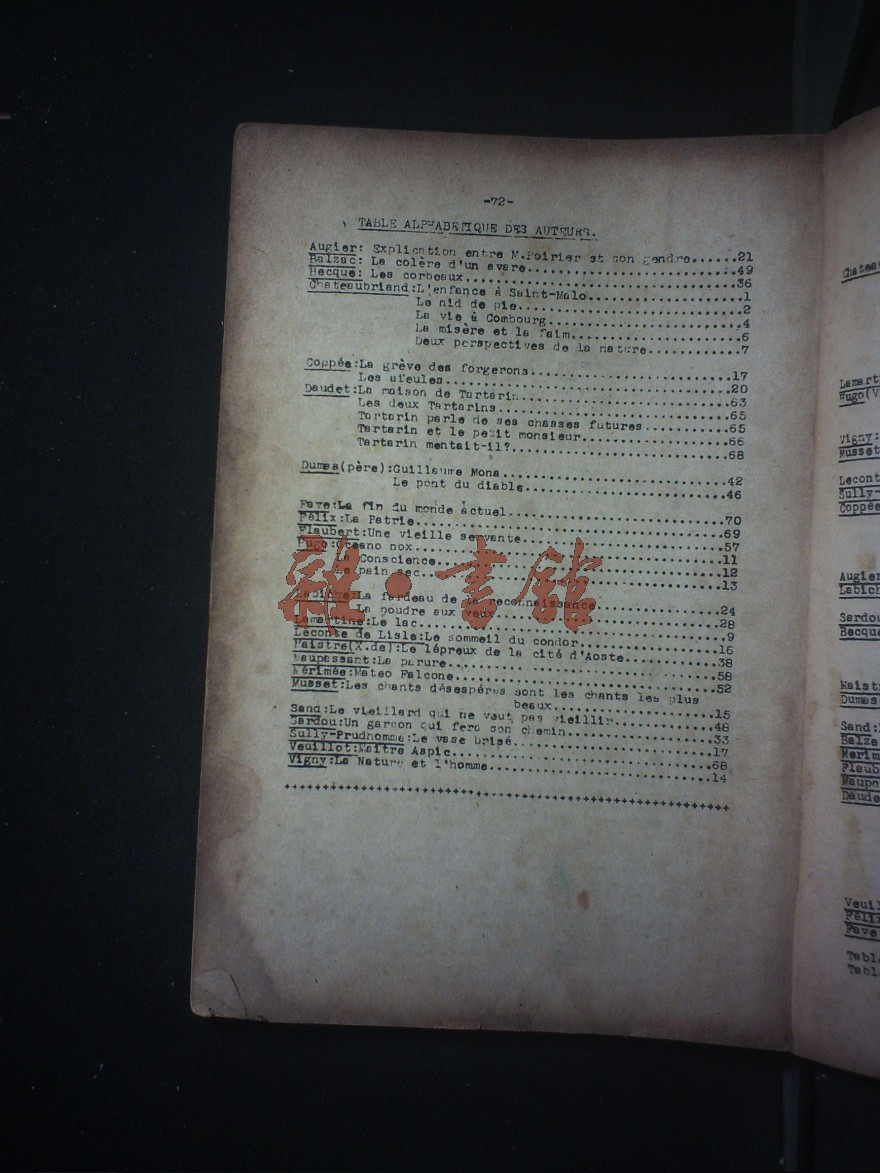 -72-
TABLE ALPHABETIQUE DES AUTEURS.
Augier: Explication entre M.Poirier et son gendre......21
Balzac: La colère d'un avare........................49
Becque: Les corbeaux................................36
Chateaubriand:L'enfance à Saint-Malo..................1
Le nid de pie........................2
La vie à Combourg.....................4
La misère et la faim..................6
Deux perspectives de la nature............7
Coppée:La grève des forgerons.......................17
Les aïeules..................................20
Daudet:La maison de Tartarin........................63
Les deux Tartarins..........................65
Tartarin parle de ses chasses futures..........65
Tartarin et le petit monsieur................66
Tartarin mentait-il?.........................68
Dumas(père):Guillaume Mona..........................42
Le pont du diable.......................46
Fave:La fin du monde actuel.........................70
Félix:La Patrie.....................................69
Flaubert:Une vieille servante.......................57
Hugo:Oceano nox.....................................11
La Conscience..................................12
Le pain sec....................................13
Labiche:Le fardeau de la reconnaissance.............24
La poudre aux yeux..........................28
Lamartine:Le lac.....................................9
Leconte de Lisle:Le sommeil du condor...............16
Maistre(X.de):Le lépreux de la cité d'Aoste.........38
Maupassant:La parure................................58
Mérimée:Mateo Falcone...............................52
Musset:Les chants désespérés sont les chants les plus
beaux.....................15
Sand:Le vieillard qui ne veut pas vieillir..........48
Sardou:Un garcon qui fera son chemin................33
Sully-Prudhomme:Le vase brisé.......................17
Veuillot:Maître Aspic...............................68
Vigny:La Nature et l'homme..........................14
++++++++++++++++++++++++++++++++++++++++++++++++++++
雜·書館
Chateau
Lamart
Hugo(V
Vigny:
Musset
Lecont
Sully-
Coppée
Augier
Labich
Sardou
Becque
Maist
Dumas
Sand:
Balza
Merim
Flaub
Maupa
Daude
Veuil
Félix
Fave
Tabl
Tabl